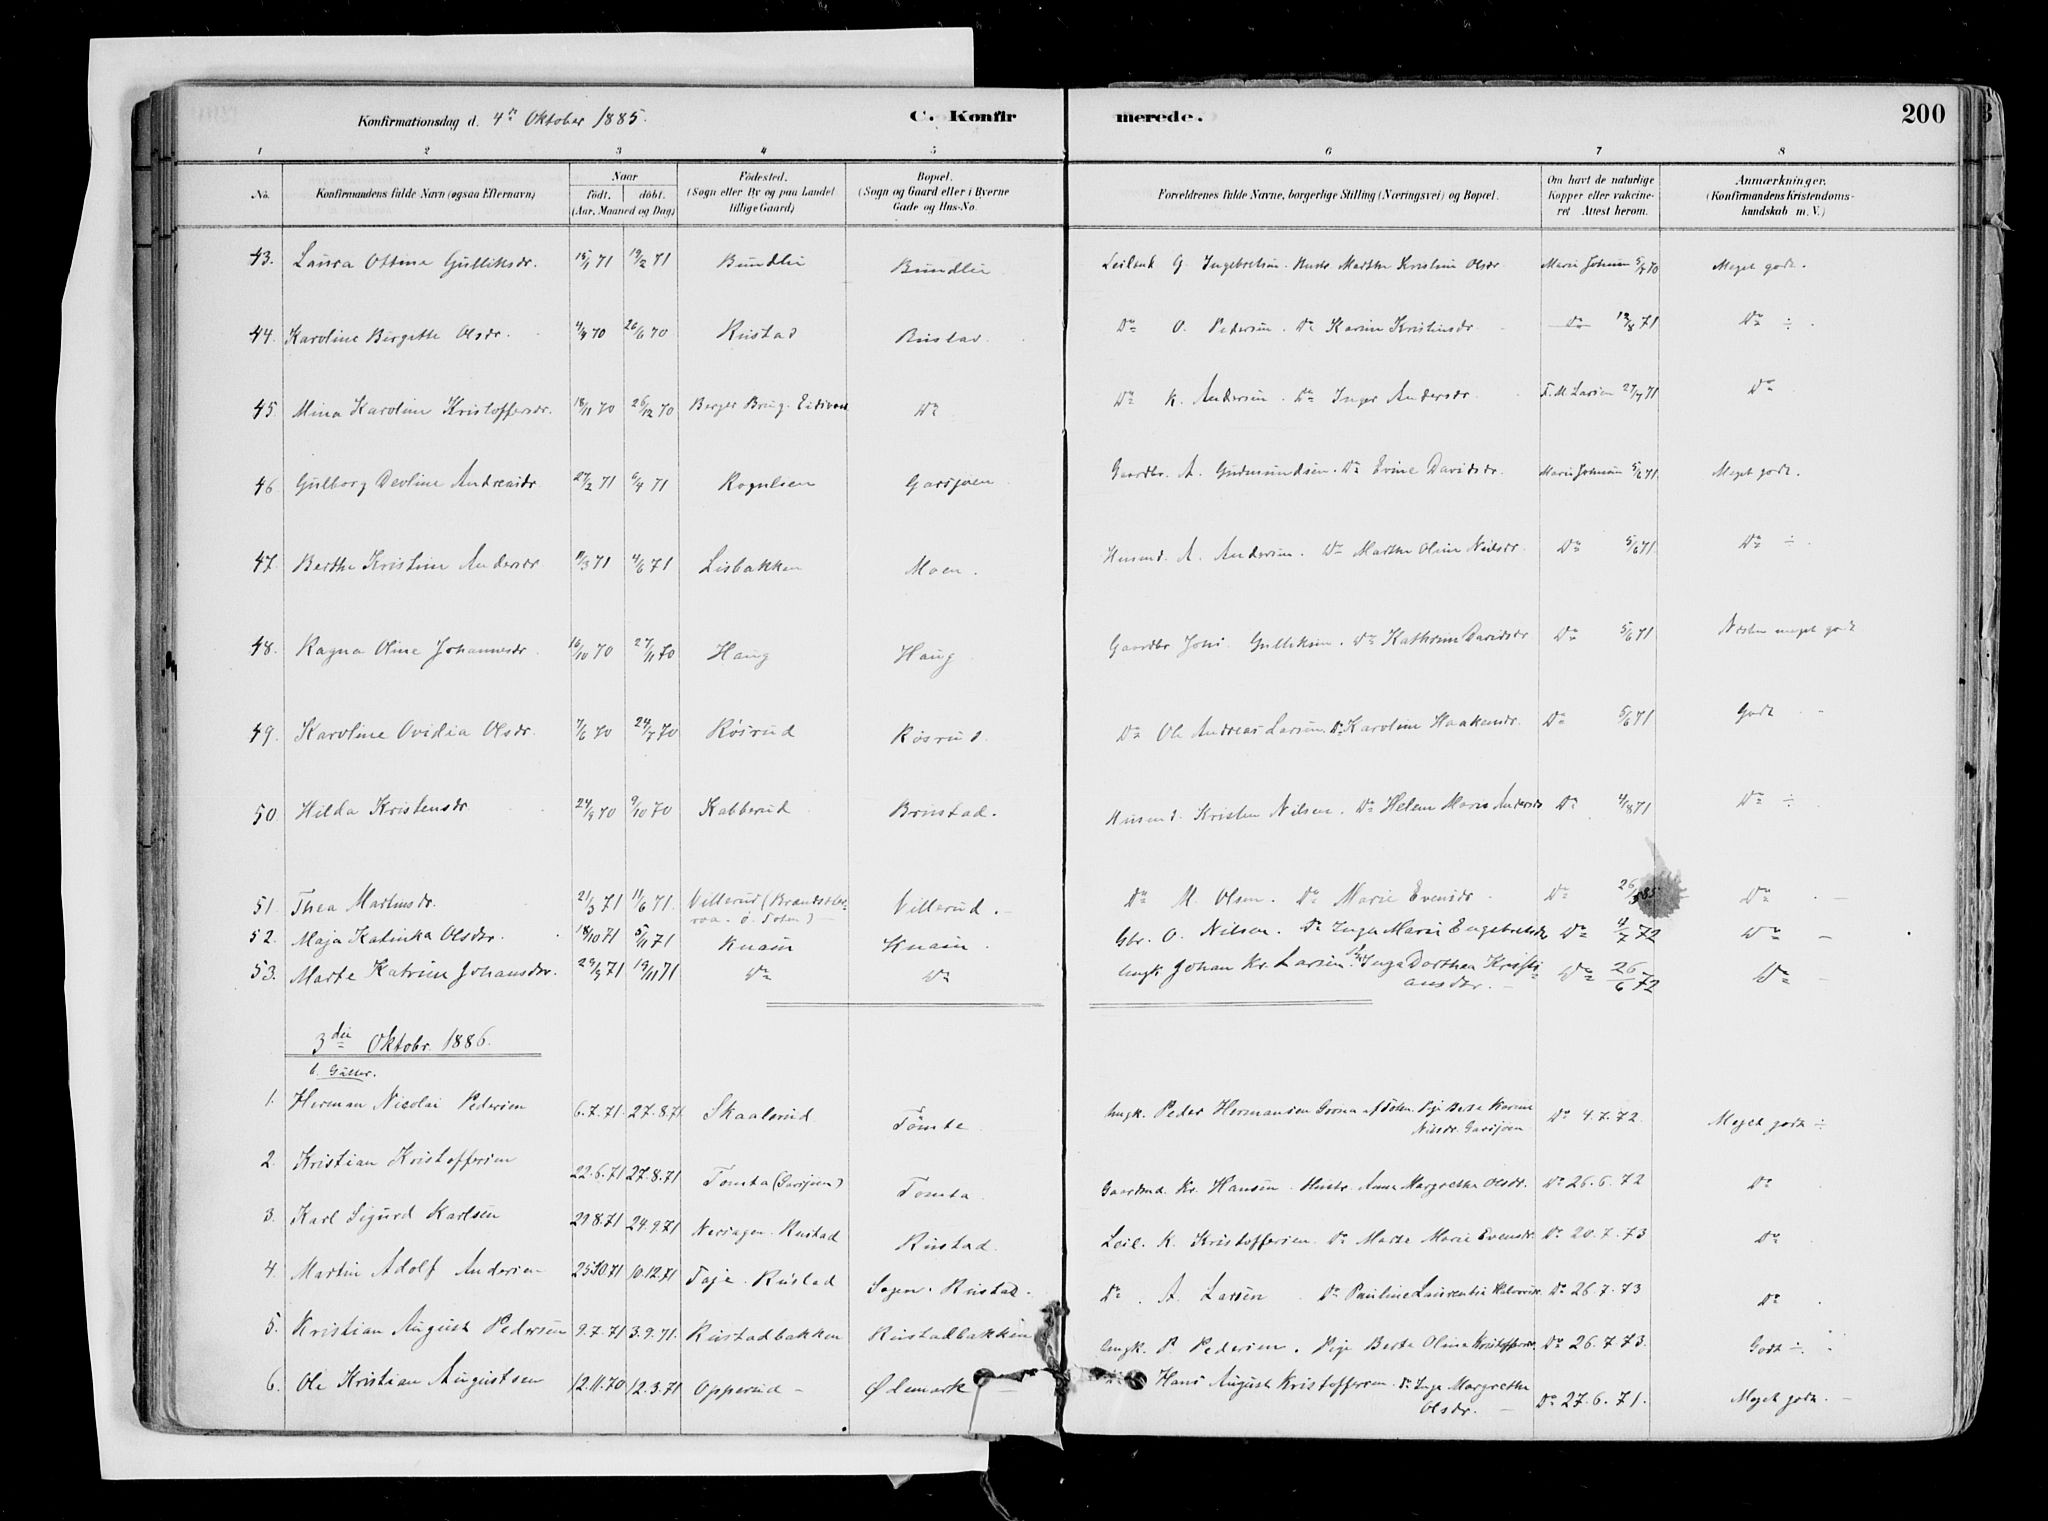 Konfirmationsdag d. 4de Oktober 1885. C. Konfirmerede. 200
1 2 3 4 5 6 7 8
No. Konfirmandens fulde Navn (ogsaa Efternavn) Naar født. døbt. (Aar, Maaned og Dag) Fødested. (Sogn eller By og paa Landet tillige Gaard) Bopæl. (Sogn og Gaard eller i Byerne Gade og Hus-No. Forældrenes fulde Navne, borgerlige Stilling (Næringsvei) og Bopæl. Om havt de naturlige Kopper eller vakcineret Attest herom. Anmærkninger. (Konfirmandens Kristendomskundskab m. V.)
43. Laura Ottine Gulliksdr. 15/1 71 19/2 71 Bundlie Bundlie Leilend G. Ingebretsen. Hustr Marthe Kristine Olsdr. Marie Johnsen 5/7 70 Meget godt.
44. Karoline Birgitte Olsdr. 4/4 70 26/6 70 Rustad Rustad Do O. Pedersen. Do Karine Kristensdr. Do 12/8 71 Do ÷
45 Mina Karoline Kristoffersdr. 18/11 70 26/12 70 Berger Brug. Eidsvold Do Do K. Andersen Do Inger Andersdr. F. M. Larsen 27/7 71 Do
46 Gulborg Devline Andreasdr. 27/2 71 6/4 71 Rognlsen Garsjøen Gaardbr. A. Gudmundsen. Do Evine Davidsdr. Marie Johnsen 5/6 71. Meget godt.
47. Berthe Kristine Andersdr 11/3 71 4/6 71 Lisbakken Moen. Husmd. A. Andersen. Do Marthe Oline Nielsdr. Do 5/6 71. Do ÷
48. Ragna Oline Johannesdr. 16/10 70 27/11 70 Haug Haug Gaardbr Johs. Gulliksen. Do Kathrine Davidsdr Do 5/6 71. Næsten meget godt
49. Karoline Ovidia Olsdr. 7/6 70 24/7 70 Røsrud Røsrud. Do Ole Andreas Larsen. Do Karoline Haakensdr. Do 5/6 71. Godt
50 Hilda Kristensdr 24/4 70 9/10 70 Kabberud Brustad. Husmd. Kristen Nilsen. Do Helene Marie Andersdr Do 4/8 71 Do ÷
51. Thea Martinsdr. 21/3 71 11/6 71. Villerud (Brandsber- Villerud. Do M. Olsen. Do Marie Evensdr. Do 26/ 85. Do
roa. ø. Toten)
52. Maja Katinka Olsdr. 18/10 71 5/11 71 Knain Knain. Gbr. O. Nilsen. Do Inger Marie Engebretsdr Do 4/7 72 Do
53. Marte Katrine Johansdr. 29/9 71 19/11 71 Do Do Ungk Johan Kr. Larsen. Pi Inga Dorthea Kristi- Do 26/6 72 Do
ansdr.
3die Oktobr. 1886.
b. Gutter.
1. Herman Nicolai Pedersen 6.7.71. 27.8.71 Skaalerud Tømte. Ungk. Peder Hermansen Grona af Toten. Pige Berte Karine Do 4.7.72. Meget godt ÷
Nilsdr. Garsjøen
2. Kristian Kristoffersen 22.6.71 27.8.71 Tomta (Garsjøen) Tomta Gaardmd. Kr. Hansen. Hustr. Anne Margrethe Olsdr. Do 26.6.72 Do
3. Karl Sigurd Karlsen 29.8.71 24.9.71 Nersagen. Rustad Rustad. Leil. K. Kristoffersen. Do Marte Marie Evensdr. Do 20.7.73 Do
4. Martin Adolf Andersen 25.10.71 10.12.71 Taje. Rustad Sagen. Rustad. Do. A. Larsen Do Pauline Laurentse Halvorsdr. Do 26.7.73 Do
5. Kristian August Pedersen 9.7.71 3.9.71. Rustadbakken Rustadbakken Ungk. P. Pedersen. Pige Berte Oline Kristoffersdr. Do 26.7.73. Godt ÷
6. Ole Kristian Augustsen 12.11.70 12.3.71 Opperud Ølemark Hans August Kristoffersen Do Inge Margrethe Do 27.6.71. Meget godt.
Olsdr.